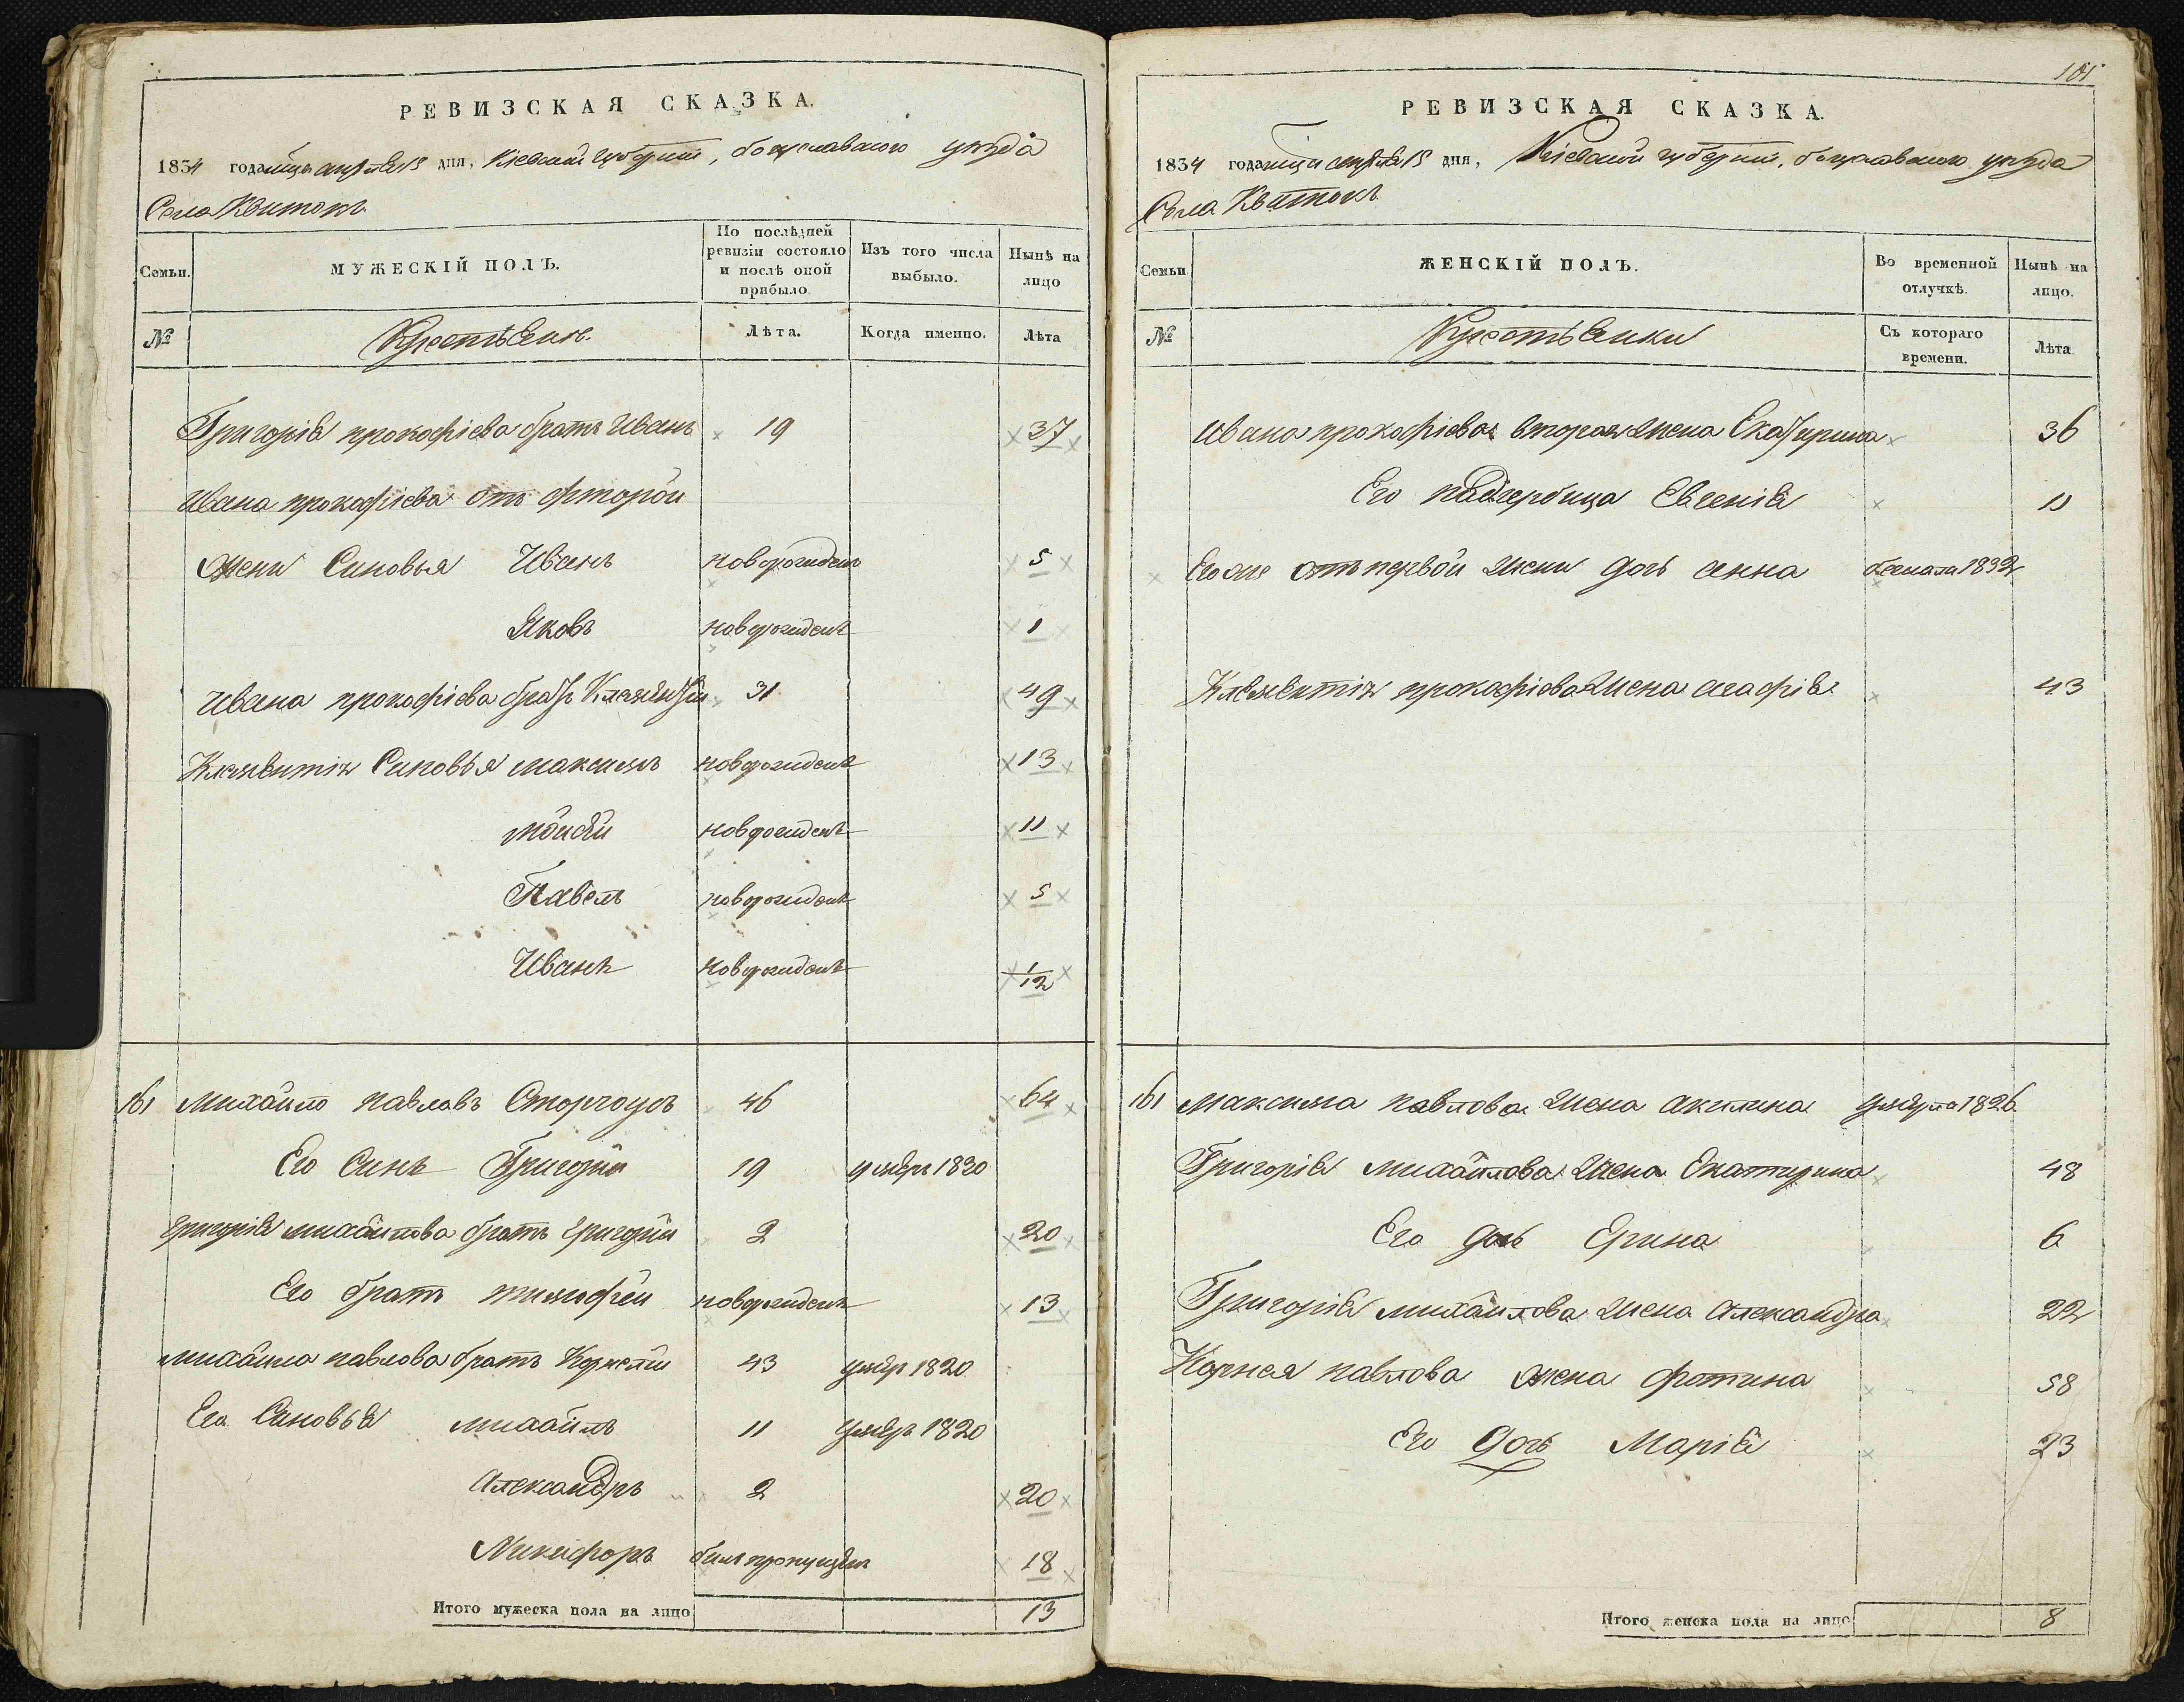 РЕВИЗСКАЯ СКАЗКА.
1834 года мца апреля 15 дня, Кіевской губерніи, богуславского уезда
Села Квитокъ
Семьи.
МУЖЕСКІЙ ПОЛЪ.
По послѣдней ревизіи состояло и послѣ оной прибыло.
Изъ того числа выбыло.
Нынѣ на лицо
№
Крестьяне.
Лѣта.
Когда именно.
Лѣта
Григорія прокофіева братъ Иванъ 19 37
Ивана прокофіева отъ фторой
жени Синовья Иванъ новорожденъ 5
Яковъ новорожденъ 1
Ивана прокофіева братъ Климентій 31 49
Климентія Синовья максимъ новорожденъ 13
мойсей новорожденъ 11
Павелъ новорожденъ 5
Иванъ новорожденъ 1/12
161 михайло павловъ 46 64
Его Синъ Григорій 19 умеръ 1830
григорія михайлова братъ григорій 2 20
Его братъ тимофей новорожденъ 13
михайла павлова братъ Корнелій 43 умеръ 1820
Его Синовья михайлъ 11 умеръ 1820
Александръ 2 20
Никифоръ билъ пропущенъ 18
Итого мужеска пола на лицо 13
101
РЕВИЗСКАЯ СКАЗКА.
1834 года мца апреля 15 дня, Кіевской губерніи, богуславского уезда
Села Квитокъ
Семьи
ЖЕНСКІЙ ПОЛЪ.
Во временной отлучкѣ.
Нынѣ на лицо.
№
Крестьянки
Съ котораго времени.
Лѣта
Ивана прокофіева вторая жена Екатерина 36
Его падчерица Евгенія 11
Его же отъ первой жени дочь анна 1832
Климентія прокофіева жена агафія 43
161 Максима павлова жена акилина умерла 1826
Григорія михайлова жена Екатерина 48
Его дочь Ерина 6
Григорія михайлова жена Александра 22
Корнея павлова жена фотина 58
Его дочь Марія 23
Итого женска пола на лицо 8